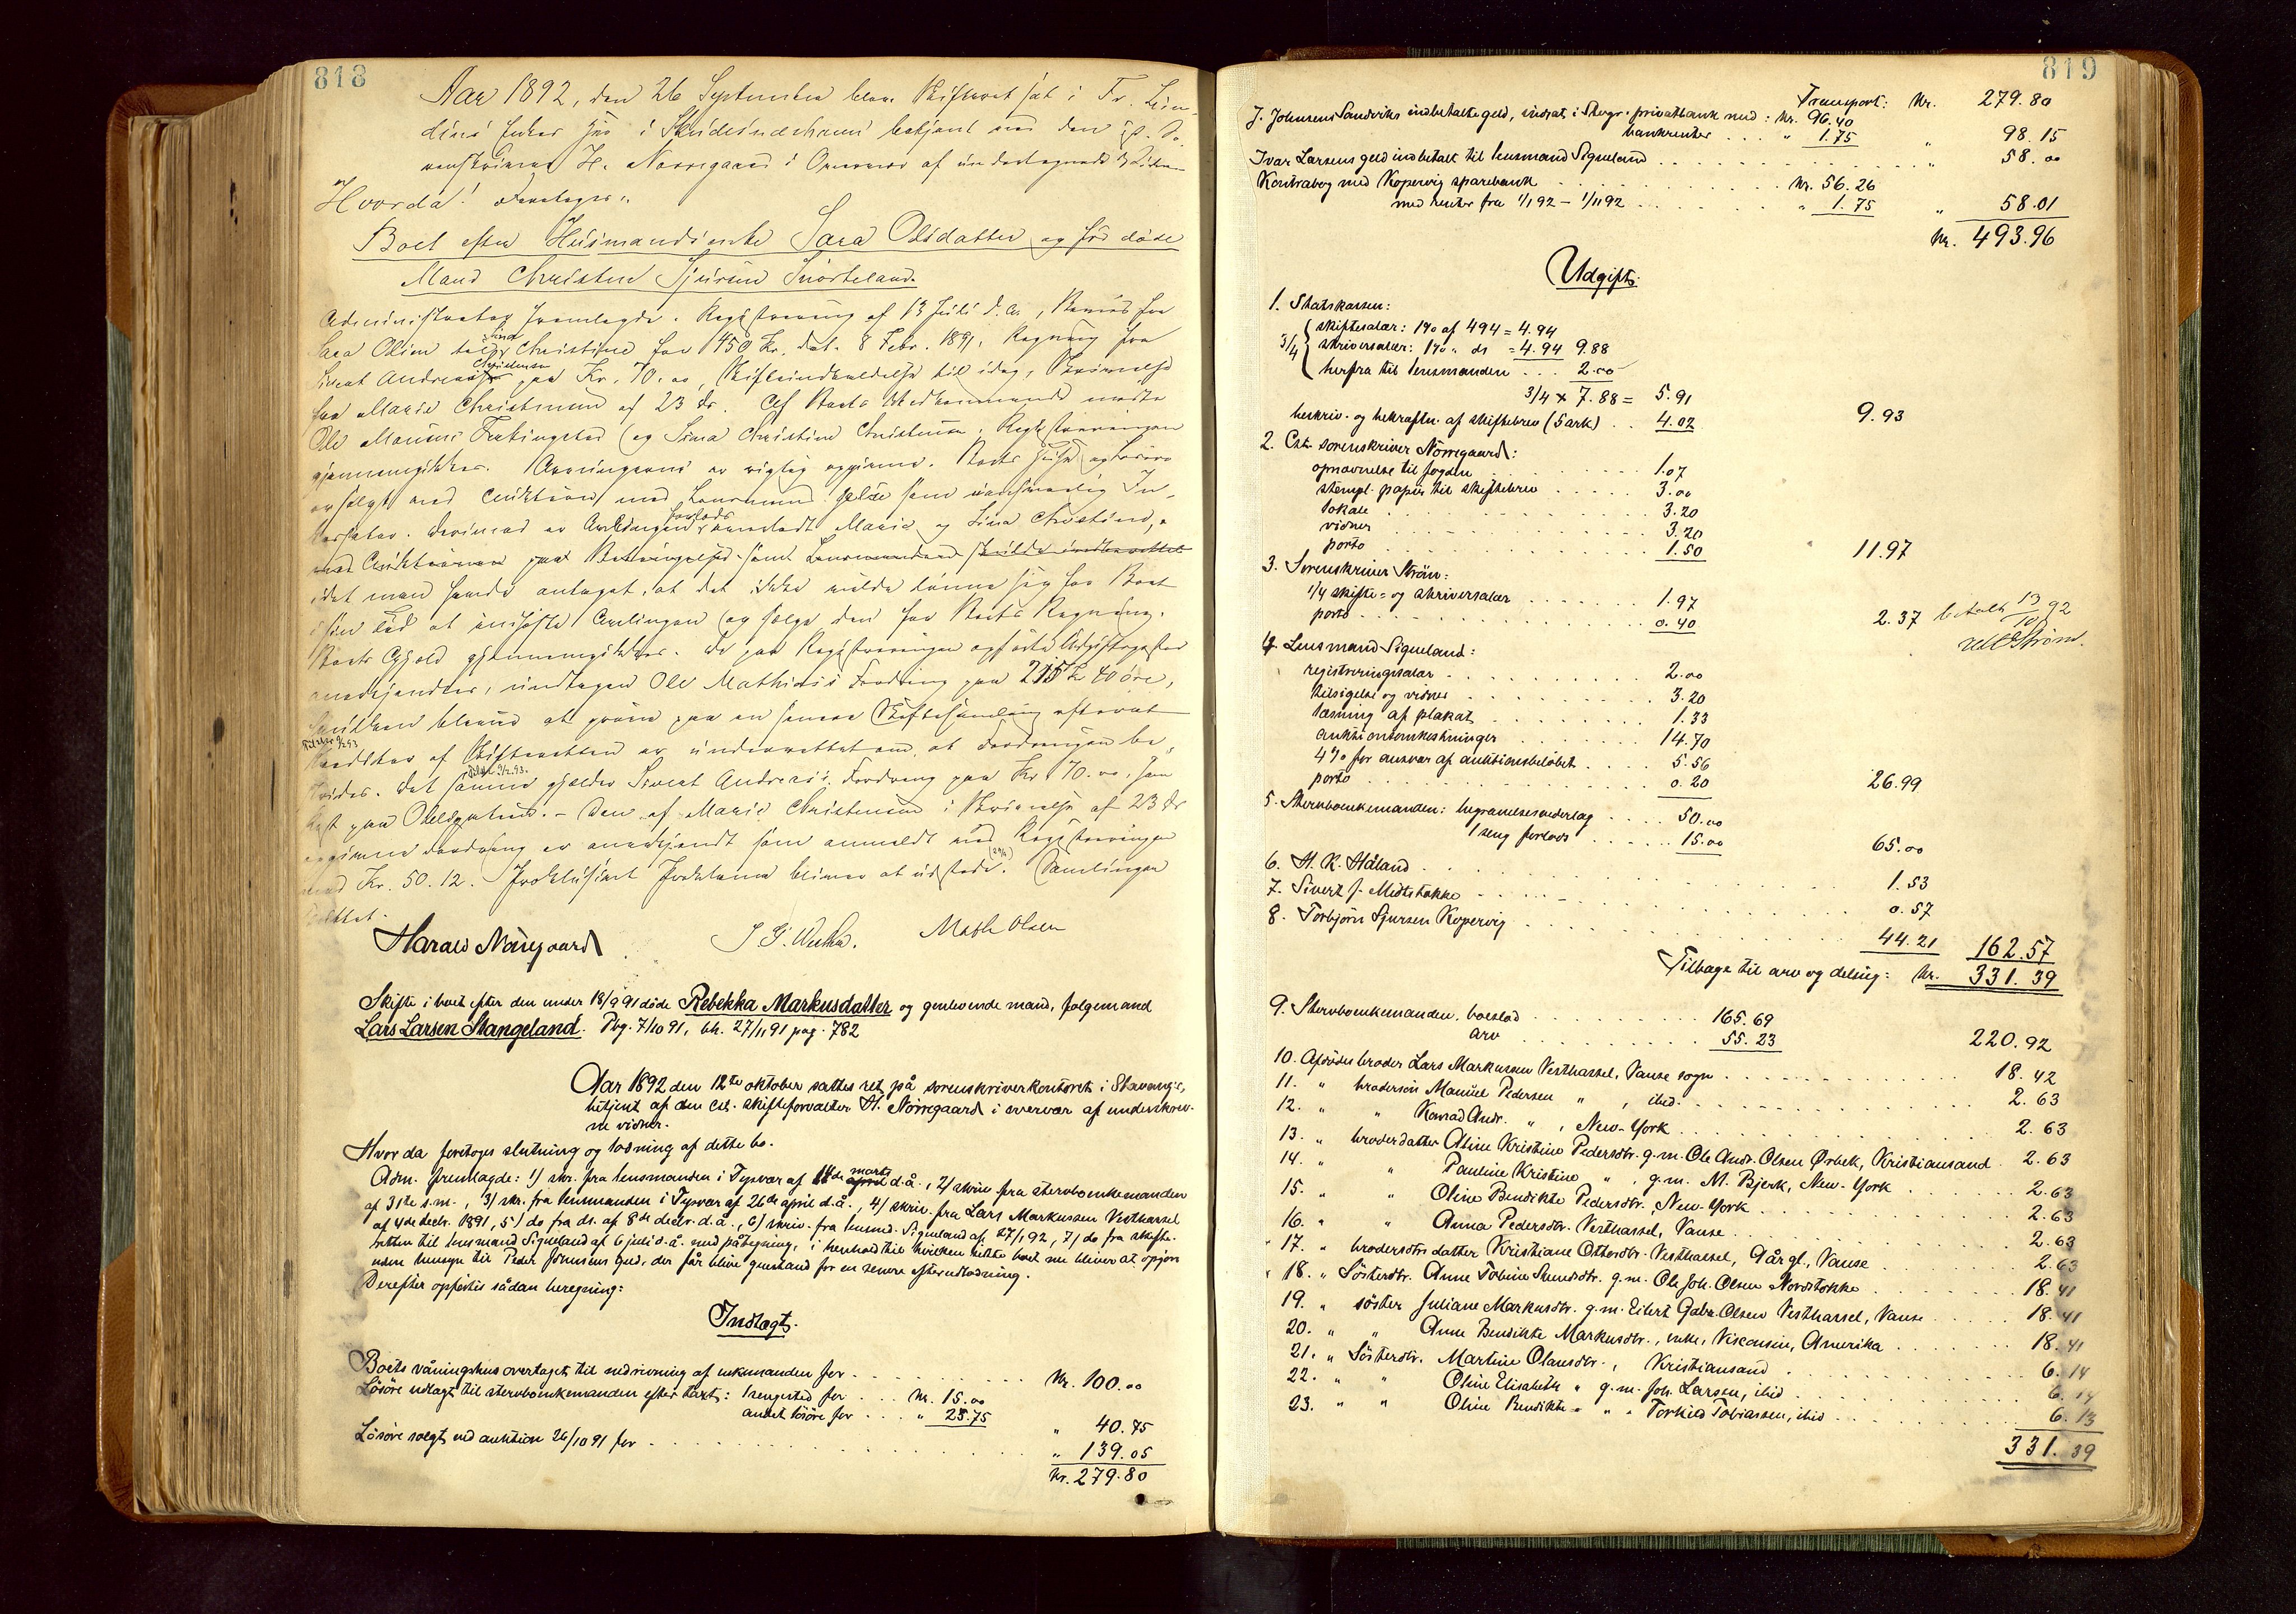 818
Aar 1892, den 26 September blev Skifteret sat i Fr.
Enkes Hus i betjent med den
H. Nørregaard i Overvær af undertegnede 2
Hvorda! Foretoges:
Boet efter Husmandsenke Sara Olsdatter og før døde
Mand Christen Sjursen
Administrator fremlagde: Registrering af 13 Juli d. A., Bevis fra
Sara til Sina Christine for 450 Kr. dat. 8 Febr. 1891, Regning fra
Sivert Andreas Christensen paa Kr. 70.00, Skifteindkaldelse til idag, Skrivelse
fra Marie Christensen af 23 ds. Af Boets Vedkommende mødte
Ole og Sina Christine Christensen. Registreringen
gjennemgikkes. Arvingerne er rigtig opgivne. Boets Huse og Løsøre
er solgt ved Auktion med Lensmanden som ansvarlig In-
kassator. Marie og Sina Christine,
idet man havde antaget, at det ikke vilde lønne sig for Boet
i sin Tid at og sælge den for Boets Regning.
Boets Gjæld gjennemgikkes. De paa Registreringen opførte Udgiftsposter
anerkjendtes, undtagen Ole Mathias's Fordring paa 215 Kr 40 øre,
hvilken bliver at prøve paa en senere Skiftesamling efterat
Kreditor af Skifteretten er underrettet om, at Fordringen be-
strides. Det samme gjælder Sivert Andreas's Fordring paa Kr 70.00, som
paa . - Den af Marie Christensen i Skrivelse af 23 ds
opgivne Fordring er anerkjendt som anmeldt ved Registreringen
med Kr. 50.12. Proklama bliver at udstede. Samlingen
hævet.
Harald Nörregaard
Math Olsen
Skifte i boet efter den under 18/9 91 döde Rebekka Markusdatter og genlevende mand, folgemand
Lars Larsen Stangeland. Pbg. 7/10 91, bh. 27/11 91 pag. 782
Aar 1892 den 12te oktober sattes ret på sorenskriverkontoret i Stavanger,
betjent af den cst. skifteforvalter H. Nörregaard i overvær af underskrev-
ne vidner.
Hvor da foretoges slutning og lodning af dette bo.
Adm. fremlagde: 1) skr. fra lensmanden i Tysvær af 11te april marts d.å., 2) skriv fra stervboenkemanden
af 31te s.m., 3) skr. fra lensmanden i Tysvær af 26de april d.å., 4) skriv. fra Lars Markussen Vesthassel
af 4de decbr. 1891, 5) do fra ds. af 8de decbr. d.å., 6) skriv. fra lensmd. Signeland af 27/1 92, 7) do fra skifte-
retten til lensmand Signeland af 6 juli d.å. med påtegning, i henhold til hvilken sidste boet nu bliver at opgjøre
uden hensyn til Peder Jonsens gæld, der får blive genstand for en senere efterudlodning.
Derefter opförtes sådan beregning:
Indtægt.
Boets våningshus overtaget til nedrivning af enkemanden for Kr. 100.00
Lösöre udlagt til stervboenkemanden efter taxt: 1 sengested for Kr. 15.00
andet lösöre for " 25.75 " 40.75
Lösöre solgt ved auktion 26/10 91 for " 139.05
Kr. 279.80
819
Transport: Kr. 279.80
J. Johnsens Sandviks indbetalte gæld, indsat i Stvgr. privatbank med: Kr. 96.40
bankrenter " 1.75 " 98.15
Ivar Larsens gæld indbetalt til lensmand Signeland " 58.00
Kontrabog med Kopervig sparebank Kr. 56.26
med renter fra 1/1 92 - 1/11 92 " 1.75 " 58.01
Kr. 493.96
Udgift:
1. Statskassen:
3/4 { skiftesalær: 1% af 494 = 4.94
skriversalær: 1% " ds = 4.94 9.88
herfra til lensmanden 2.00
3/4 x 7.88 = 5.91
beskriv. og bekræftn. af skiftebrev (5 ark) 4.02 9.93
2. Cst. sorenskriver Nörregaard:
opnævnelse til fogden 1.07
stempl. papir til skiftebrev 3.00
lokale 3.20
vidner 3.20
porto 1.50 11.97
3. Sorenskriver Ström:
1/4 skifte- og skriversalær 1.97
porto 0.40 2.37 betalt 13/10 92
Ström.
4. Lensmand Signeland:
registreringssalær 2.00
tilsigelse og vidner 3.20
læsning af plakat 1.33
auktionsomkostninger 14.70
4% for ansvar af auktionsbelöbet 5.56
porto 0.20 26.99
5. Stervboenkemanden: begravelsesvederlag 50.00
1 seng forlods 15.00 65.00
6. H. K. Håland 1.53
7. Sivert J. Midtstokke 0.57
8. Torbjörn Sjursen Kopervig 44.21 162.57
Tilbage til arv og deling: Kr. 331.39
9. Stervboenkemanden, boeslod 165.69
arv 55.23 220.92
10. Afdödes broder Lars Markussen Vesthassel, Vanse sogn 18.42
11. " brodersön Manuel Pedersen " , ibid. 2.63
12. " " Konrad Andr. " , New-York 2.63
13. " broderdatter Aline Kristine Pedersdtr. g.m. Ole Andr. Olsen Ørbek, Kristiansand 2.63
14. " " Pauline Kristine " , g.m. M. Bjerk, New-York 2.63
15. " " Oline Bendikte Pedersdtr., New-York 2.63
16. " " Anna Pedersdtr. Vesthassel, Vanse 2.63
17. " brodersdtrs datter Kristiane Ottersdtr. Vesthassel, 9 år gl., Vanse 2.63
18. " Sösterdtr. Anne Tobine g.m. Ole Joh. Olsen Nordstokke 18.41
19. " söster Juliane Markusdtr. g.m. Eilert Gabr. Olsen Vesthassel, Vanse 18.41
20. " " Anne Bendikte Markusdtr., enke, Visconsin, Amerika 18.41
21. " Sösterdtr. Martine Olausdtr., Kristiansand 6.14
22. " " Oline Elisabeth " g.m. Joh. Larsen, ibid 6.14
23. " " Oline Bendikte " " " Torkild Tobiassen, ibid 6.13
331.39